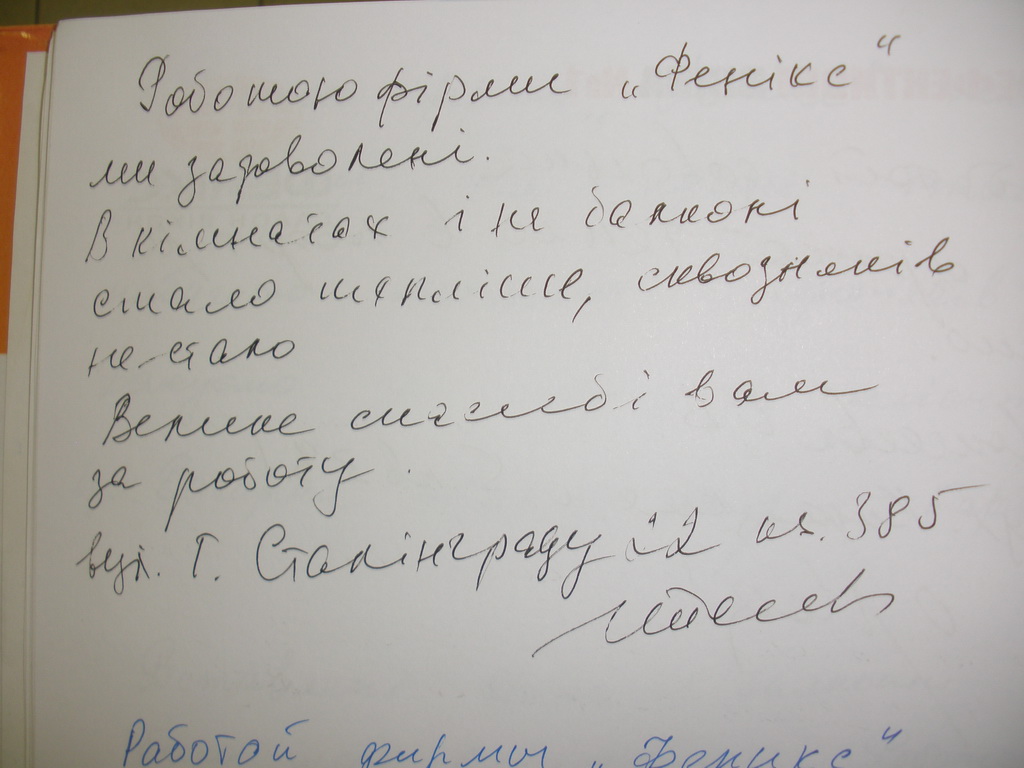 Роботою фірми „Фенікс"
ми задоволені.
В кімнатах і на балконі
стало тепліше, сквозняків
не стало
Велике спасибі вам
за роботу.
вул. Г. Сталінграду 22 кв. 385
Работой фирмы „Феникс"